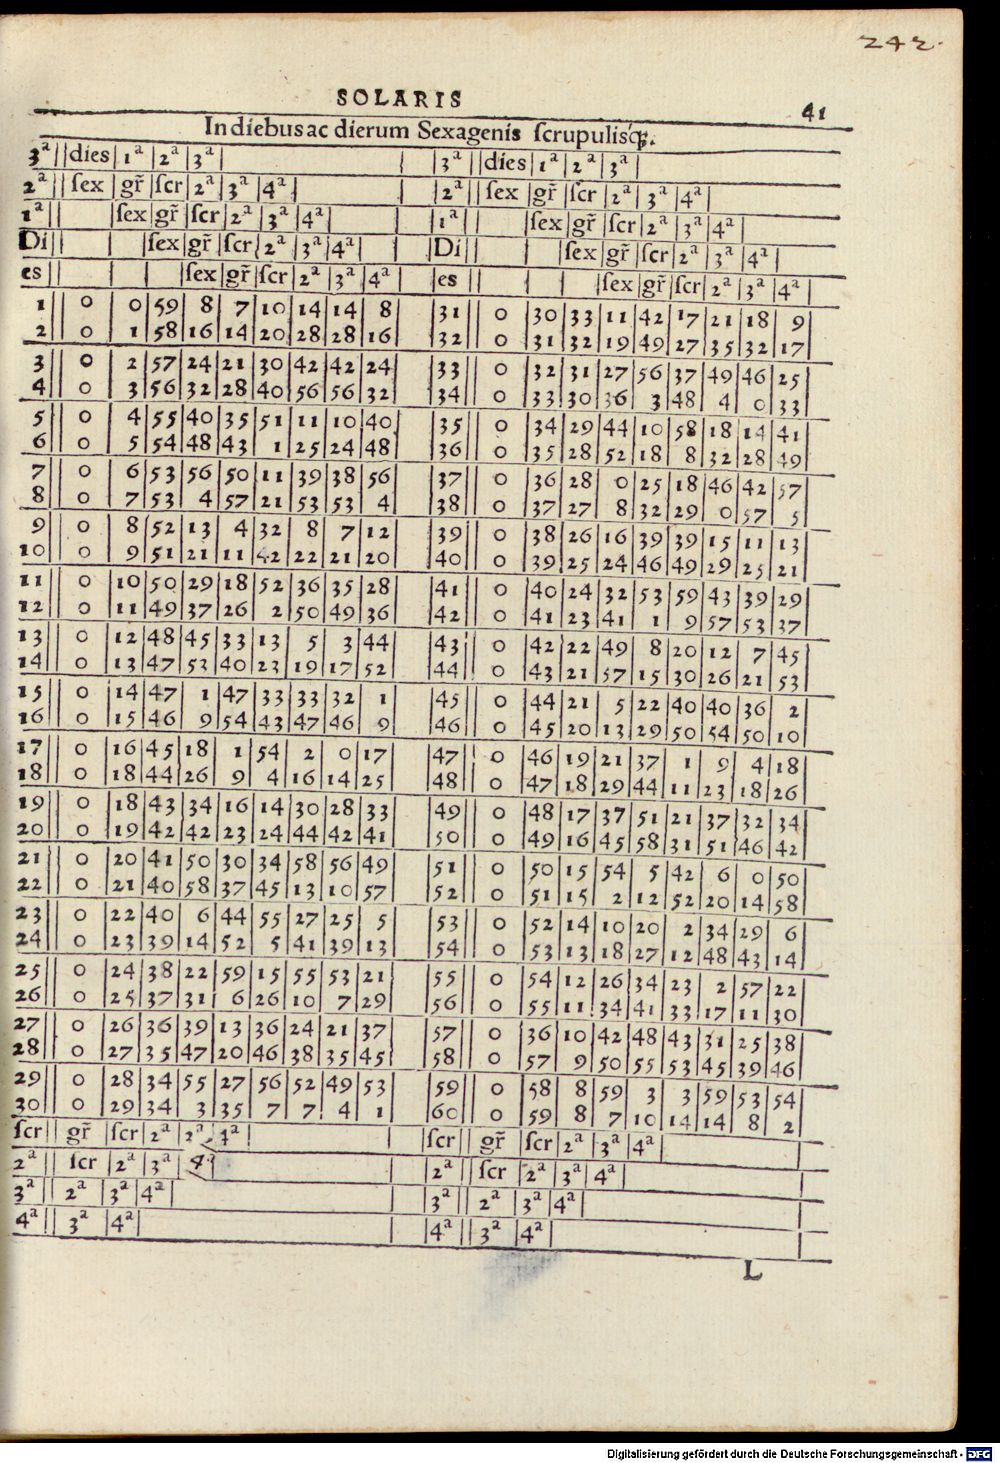 242.
SOLARIS
41
In diebus ac dierum Sexagenis ſcrupulisq́;.
3ª || dies | 1ª | 2ª | 3ª | | 3ª || dies | 1ª | 2ª | 3ª |
2ª || ſex | gr̃ | ſcr | 2ª | 3ª | 4ª | | 2ª || ſex | gr̃ | ſcr | 2ª | 3ª | 4ª |
1ª || | ſex | gr̃ | ſcr | 2ª | 3ª | 4ª | | 1ª || | ſex | gr̃ | ſcr | 2ª | 3ª | 4ª |
Di || | | ſex | gr̃ | ſcr | 2ª | 3ª | 4ª | | Di || | | ſex | gr̃ | ſcr | 2ª | 3ª | 4ª |
es || | | | ſex | gr̃ | ſcr | 2ª | 3ª | 4ª | es || | | | ſex | gr̃ | ſcr | 2ª | 3ª | 4ª |
1 || 0 | 0 | 59 | 8 | 7 | 10 | 14 | 14 | 8 | 31 || 0 | 30 | 33 | 11 | 42 | 17 | 21 | 18 | 9
2 || 0 | 1 | 58 | 16 | 14 | 20 | 28 | 28 | 16 | 32 || 0 | 31 | 32 | 19 | 49 | 27 | 35 | 32 | 17
3 || 0 | 2 | 57 | 24 | 21 | 30 | 42 | 42 | 24 | 33 || 0 | 32 | 31 | 27 | 56 | 37 | 49 | 46 | 25
4 || 0 | 3 | 56 | 32 | 28 | 40 | 56 | 56 | 32 | 34 || 0 | 33 | 30 | 36 | 3 | 48 | 4 | 0 | 33
5 || 0 | 4 | 55 | 40 | 35 | 51 | 11 | 10 | 40 | 35 || 0 | 34 | 29 | 44 | 10 | 58 | 18 | 14 | 41
6 || 0 | 5 | 54 | 48 | 43 | 1 | 25 | 24 | 48 | 36 || 0 | 35 | 28 | 52 | 18 | 8 | 32 | 28 | 49
7 || 0 | 6 | 53 | 56 | 50 | 11 | 39 | 38 | 56 | 37 || 0 | 36 | 28 | 0 | 25 | 18 | 46 | 42 | 57
8 || 0 | 7 | 53 | 4 | 57 | 21 | 53 | 53 | 4 | 38 || 0 | 37 | 27 | 8 | 32 | 29 | 0 | 57 | 5
9 || 0 | 8 | 52 | 13 | 4 | 32 | 8 | 7 | 12 | 39 || 0 | 38 | 26 | 16 | 39 | 39 | 15 | 11 | 13
10 || 0 | 9 | 51 | 21 | 11 | 42 | 22 | 21 | 20 | 40 || 0 | 39 | 25 | 24 | 46 | 49 | 29 | 25 | 21
11 || 0 | 10 | 50 | 29 | 18 | 52 | 36 | 35 | 28 | 41 || 0 | 40 | 24 | 32 | 53 | 59 | 43 | 39 | 29
12 || 0 | 11 | 49 | 37 | 26 | 2 | 50 | 49 | 36 | 42 || 0 | 41 | 23 | 41 | 1 | 9 | 57 | 53 | 37
13 || 0 | 12 | 48 | 45 | 33 | 13 | 5 | 3 | 44 | 43 || 0 | 42 | 22 | 49 | 8 | 20 | 12 | 7 | 45
14 || 0 | 13 | 47 | 53 | 40 | 23 | 19 | 17 | 52 | 44 || 0 | 43 | 21 | 57 | 15 | 30 | 26 | 21 | 53
15 || 0 | 14 | 47 | 1 | 47 | 33 | 33 | 32 | 1 | 45 || 0 | 44 | 21 | 5 | 22 | 40 | 40 | 36 | 2
16 || 0 | 15 | 46 | 9 | 54 | 43 | 47 | 46 | 9 | 46 || 0 | 45 | 20 | 13 | 29 | 50 | 54 | 50 | 10
17 || 0 | 16 | 45 | 18 | 1 | 54 | 2 | 0 | 17 | 47 || 0 | 46 | 19 | 21 | 37 | 1 | 9 | 4 | 18
18 || 0 | 18 | 44 | 26 | 9 | 4 | 16 | 14 | 25 | 48 || 0 | 47 | 18 | 29 | 44 | 11 | 23 | 18 | 26
19 || 0 | 18 | 43 | 34 | 16 | 14 | 30 | 28 | 33 | 49 || 0 | 48 | 17 | 37 | 51 | 21 | 37 | 32 | 34
20 || 0 | 19 | 42 | 42 | 23 | 24 | 44 | 42 | 41 | 50 || 0 | 49 | 16 | 45 | 58 | 31 | 51 | 46 | 42
21 || 0 | 20 | 41 | 50 | 30 | 34 | 58 | 56 | 49 | 51 || 0 | 50 | 15 | 54 | 5 | 42 | 6 | 0 | 50
22 || 0 | 21 | 40 | 58 | 37 | 45 | 13 | 10 | 57 | 52 || 0 | 51 | 15 | 2 | 12 | 52 | 20 | 14 | 58
23 || 0 | 22 | 40 | 6 | 44 | 55 | 27 | 25 | 5 | 53 || 0 | 52 | 14 | 10 | 20 | 2 | 34 | 29 | 6
24 || 0 | 23 | 39 | 14 | 52 | 5 | 41 | 39 | 13 | 54 || 0 | 53 | 13 | 18 | 27 | 12 | 48 | 43 | 14
25 || 0 | 24 | 38 | 22 | 59 | 15 | 55 | 53 | 21 | 55 || 0 | 54 | 12 | 26 | 34 | 23 | 2 | 57 | 22
26 || 0 | 25 | 37 | 31 | 6 | 26 | 10 | 7 | 29 | 56 || 0 | 55 | 11 | 34 | 41 | 33 | 17 | 11 | 30
27 || 0 | 26 | 36 | 39 | 13 | 36 | 24 | 21 | 37 | 57 || 0 | 36 | 10 | 42 | 48 | 43 | 31 | 25 | 38
28 || 0 | 27 | 35 | 47 | 20 | 46 | 38 | 35 | 45 | 58 || 0 | 57 | 9 | 50 | 55 | 53 | 45 | 39 | 46
29 || 0 | 28 | 34 | 55 | 27 | 56 | 52 | 49 | 53 | 59 || 0 | 58 | 8 | 59 | 3 | 3 | 59 | 53 | 54
30 || 0 | 29 | 34 | 3 | 35 | 7 | 7 | 4 | 1 | 60 || 0 | 59 | 8 | 7 | 10 | 14 | 14 | 8 | 2
ſcr || gr̃ | ſcr | 2ª | 2ª | 4ª | | ſcr || gr̃ | ſcr | 2ª | 3ª | 4ª |
2ª || ſcr | 2ª | 3ª | 4ª | | 2ª || ſcr | 2ª | 3ª | 4ª |
3ª || 2ª | 3ª | 4ª | | 3ª || 2ª | 3ª | 4ª |
4ª || 3ª | 4ª | | 4ª || 3ª | 4ª |
L
Digitalisierung gefördert durch die Deutsche Forschungsgemeinschaft - DFG